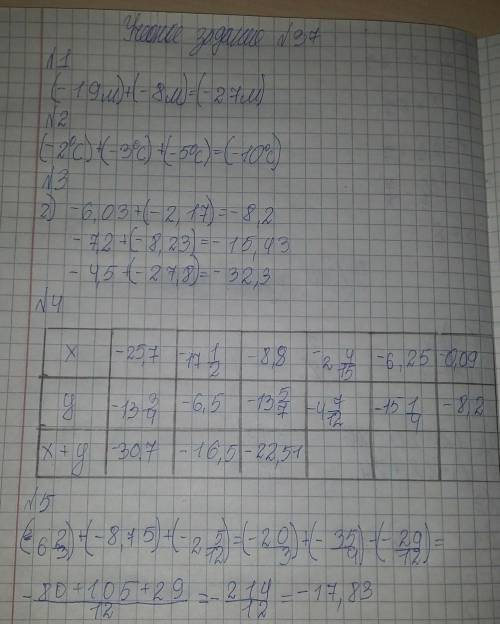 Учебное задание №37
№1
(-19м)+(-8м)=(-27м)
№2
(-2°C)+(-3°C)+(-5°C)=(-10°C)
№3
2) -6,03+(-2,17)=-8,2
-7,2+(-8,23)=-15,43
-4,5+(-27,8)=-32,3
№4
x -25,7 -17 1/2 -8,8 -2 4/15 -6,25 -0,09
y -13 3/4 -6,5 -13 5/7 -4 7/12 -15 1/4 -8,2
x+y -30,7 -16,5 -22,51
№5
(-6 2/3)+(-8,75)+(-2 5/12)=(-20/3)+(-35/4)+(-29/12)=
-80+105+29/12=-214/12=-17,83